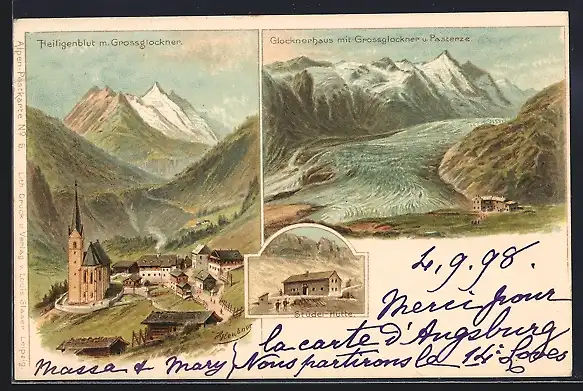 Heiligenblut m. Grossglockner.
Glocknerhaus mit Grossglockner u Pasterze.
Alpen-Postkarte No. 6. Lith. Druck u. Verlag v. Louis Glaser, Leipzig.
Stüdel-Hütte.
4.9.98.
Merci pour
la carte d'Augsburg
Massa & Mary} Nous partirons le